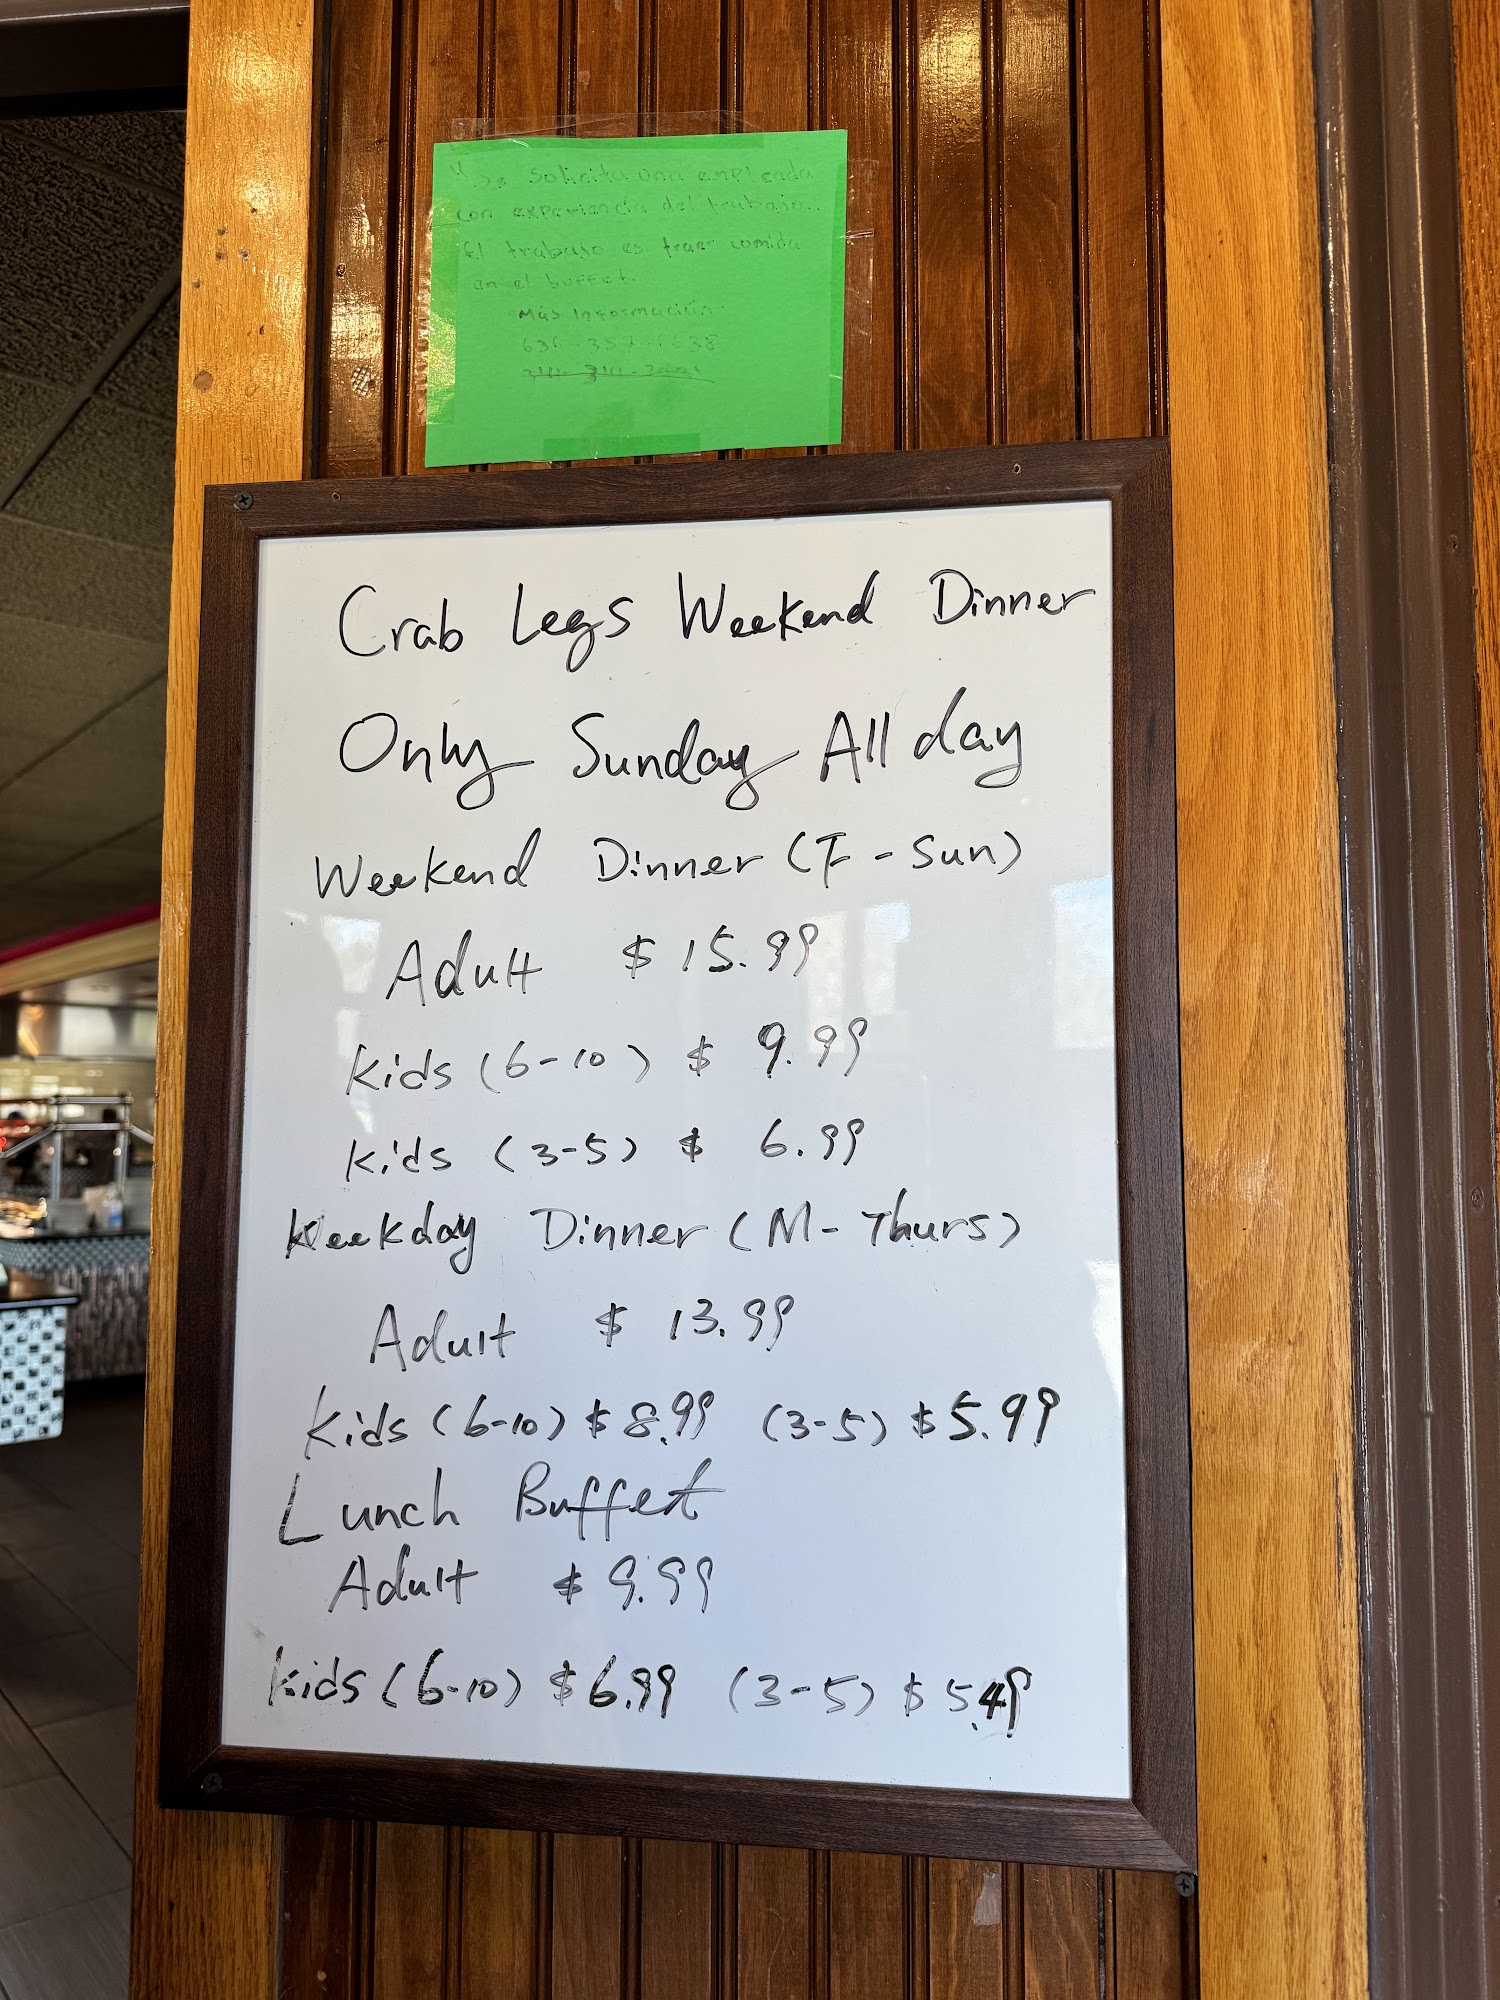 "Se solicita una empleada
con experiencia del trabajo..
El trabajo es traer comida
en el buffet.
Más información.
636-357-
Crab Legs Weekend Dinner
Only Sunday All day
Weekend Dinner (F-Sun)
Adult $15.99
Kids (6-10) $ 9.99
Kids (3-5) $ 6.99
Weekday Dinner (M-Thurs)
Adult $ 13.99
Kids (6-10) $8.99 (3-5) $5.99
Lunch Buffet
Adult $9.99
Kids (6-10) $6.99 (3-5) $5.49